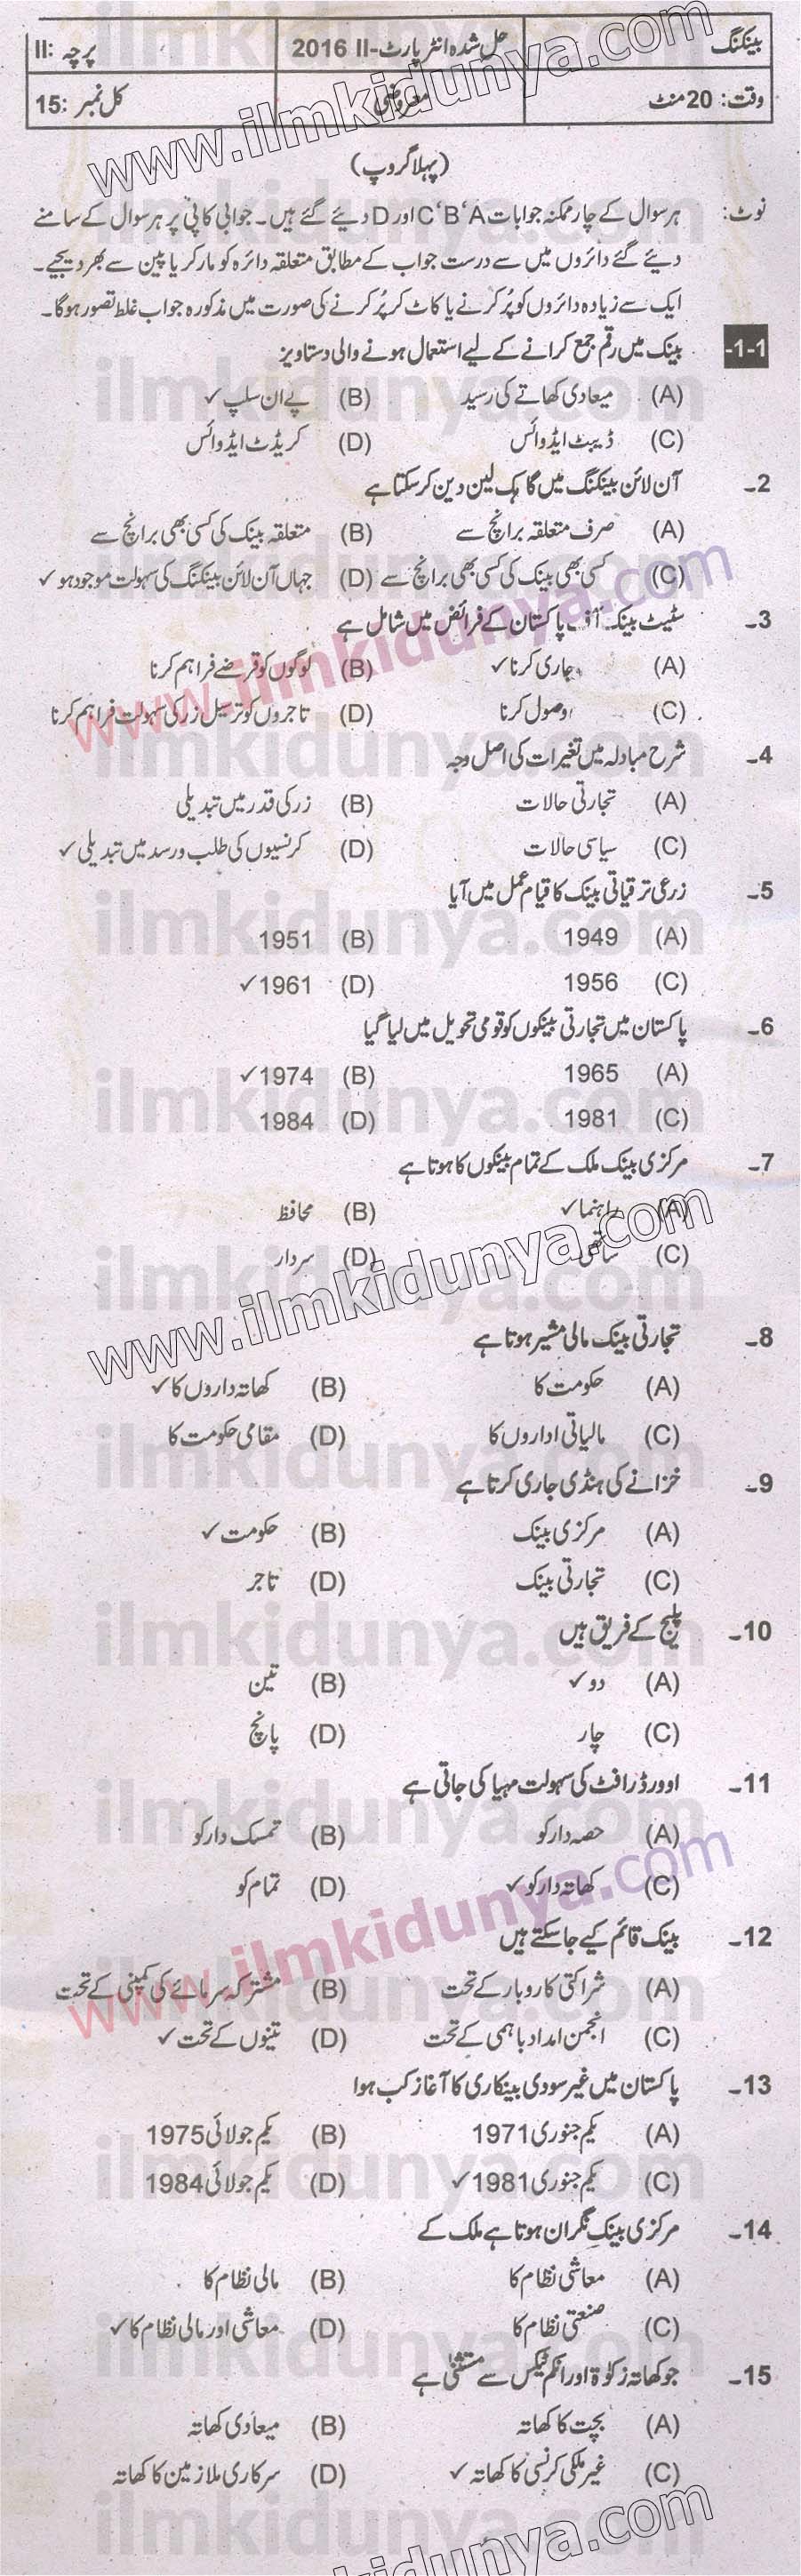 بینکنگ حل شدہ انٹر پارٹ-II 2016 پرچہ: II
وقت: 20 منٹ معروضی کل نمبر: 15
(پہلا گروپ)
نوٹ: ہر سوال کے چار ممکنہ جوابات A‘B‘C اور D دیئے گئے ہیں۔ جوابی کاپی پر ہر سوال کے سامنے
دیئے گئے دائروں میں سے درست جواب کے مطابق متعلقہ دائرہ کو مارکر یا پین سے بھر دیجیے۔
ایک سے زیادہ دائروں کو پُر کرنے یا کاٹ کر پُر کرنے کی صورت میں مذکورہ جواب غلط تصور ہوگا۔
1-1- بینک میں رقم جمع کرانے کے لیے استعمال ہونے والی دستاویز
(A) میعادی کھاتے کی رسید (B) پے ان سلپ ✓
(C) ڈیبٹ ایڈوائس (D) کریڈٹ ایڈوائس
2۔ آن لائن بینکنگ میں گاہک لین دین کر سکتا ہے
(A) صرف متعلقہ برانچ سے (B) متعلقہ بینک کی کسی بھی برانچ سے
(C) کسی بھی بینک کی کسی بھی برانچ سے (D) جہاں آن لائن بینکنگ کی سہولت موجود ہو ✓
3۔ سٹیٹ بینک آف پاکستان کے فرائض میں شامل ہے
(A) جاری کرنا ✓ (B) لوگوں کو قرضے فراہم کرنا
(C) وصول کرنا (D) تاجروں کو ترسیل زر کی سہولت فراہم کرنا
4۔ شرح مبادلہ میں تغیرات کی اصل وجہ
(A) تجارتی حالات (B) زر کی قدر میں تبدیلی
(C) سیاسی حالات (D) کرنسیوں کی طلب و رسد میں تبدیلی ✓
5۔ زرعی ترقیاتی بینک کا قیام عمل میں آیا
(A) 1949 (B) 1951
(C) 1956 (D) 1961 ✓
6۔ پاکستان میں تجارتی بینکوں کو قومی تحویل میں لیا گیا
(A) 1965 (B) 1974 ✓
(C) 1981 (D) 1984
7۔ مرکزی بینک ملک کے تمام بینکوں کا ہوتا ہے
(A) راہنما ✓ (B) محافظ
(C) ساتھی (D) سردار
8۔ تجارتی بینک مالی مشیر ہوتا ہے
(A) حکومت کا (B) کھاتہ داروں کا ✓
(C) مالیاتی اداروں کا (D) مقامی حکومت کا
9۔ خزانے کی ہنڈی جاری کرتا ہے
(A) مرکزی بینک (B) حکومت ✓
(C) تجارتی بینک (D) تاجر
10۔ پلیج کے فریق ہیں
(A) دو ✓ (B) تین
(C) چار (D) پانچ
11۔ اوورڈرافٹ کی سہولت مہیا کی جاتی ہے
(A) حصہ دار کو (B) تمسک دار کو
(C) کھاتہ دار کو ✓ (D) تمام کو
12۔ بینک قائم کیے جا سکتے ہیں
(A) شراکتی کاروبار کے تحت (B) مشترکہ سرمائے کی کمپنی کے تحت
(C) انجمن امداد باہمی کے تحت (D) تینوں کے تحت ✓
13۔ پاکستان میں غیر سودی بینکاری کا آغاز کب ہوا
(A) یکم جنوری 1971 (B) یکم جولائی 1975
(C) یکم جنوری 1981 ✓ (D) یکم جولائی 1984
14۔ مرکزی بینک نگران ہوتا ہے ملک کے
(A) معاشی نظام کا (B) مالی نظام کا
(C) صنعتی نظام کا (D) معاشی اور مالی نظام کا ✓
15۔ جو کھاتہ زکوٰۃ اور انکم ٹیکس سے مستثنیٰ ہے
(A) بچت کا کھاتہ (B) میعادی کھاتہ
(C) غیر ملکی کرنسی کا کھاتہ ✓ (D) سرکاری ملازمین کا کھاتہ
www.ilmkidunya.com